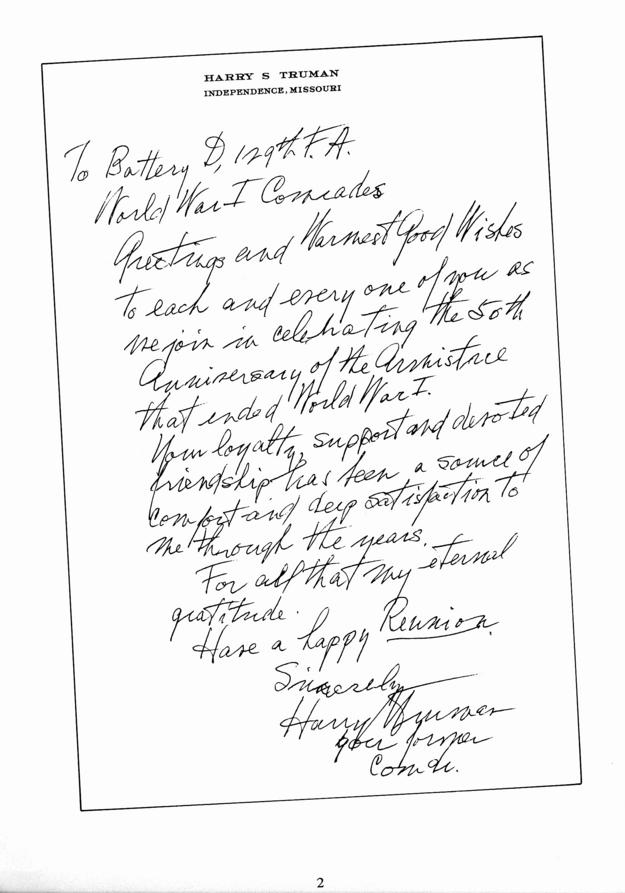 HARRY S TRUMAN
INDEPENDENCE, MISSOURI
To Battery D, 129th F.A.
World War I Comrades
Greetings and Warmest Good Wishes
to each and every one of you as
we join in celebrating the 50th
Anniversary of the Armistice
that ended World War I.
Your loyalty, support and devoted
friendship has been a source of
comfort and deep satisfaction to
me through the years.
For all that my eternal
gratitude.
Have a happy Reunion.
Sincerely
Harry Truman
your former
Comdr.
2